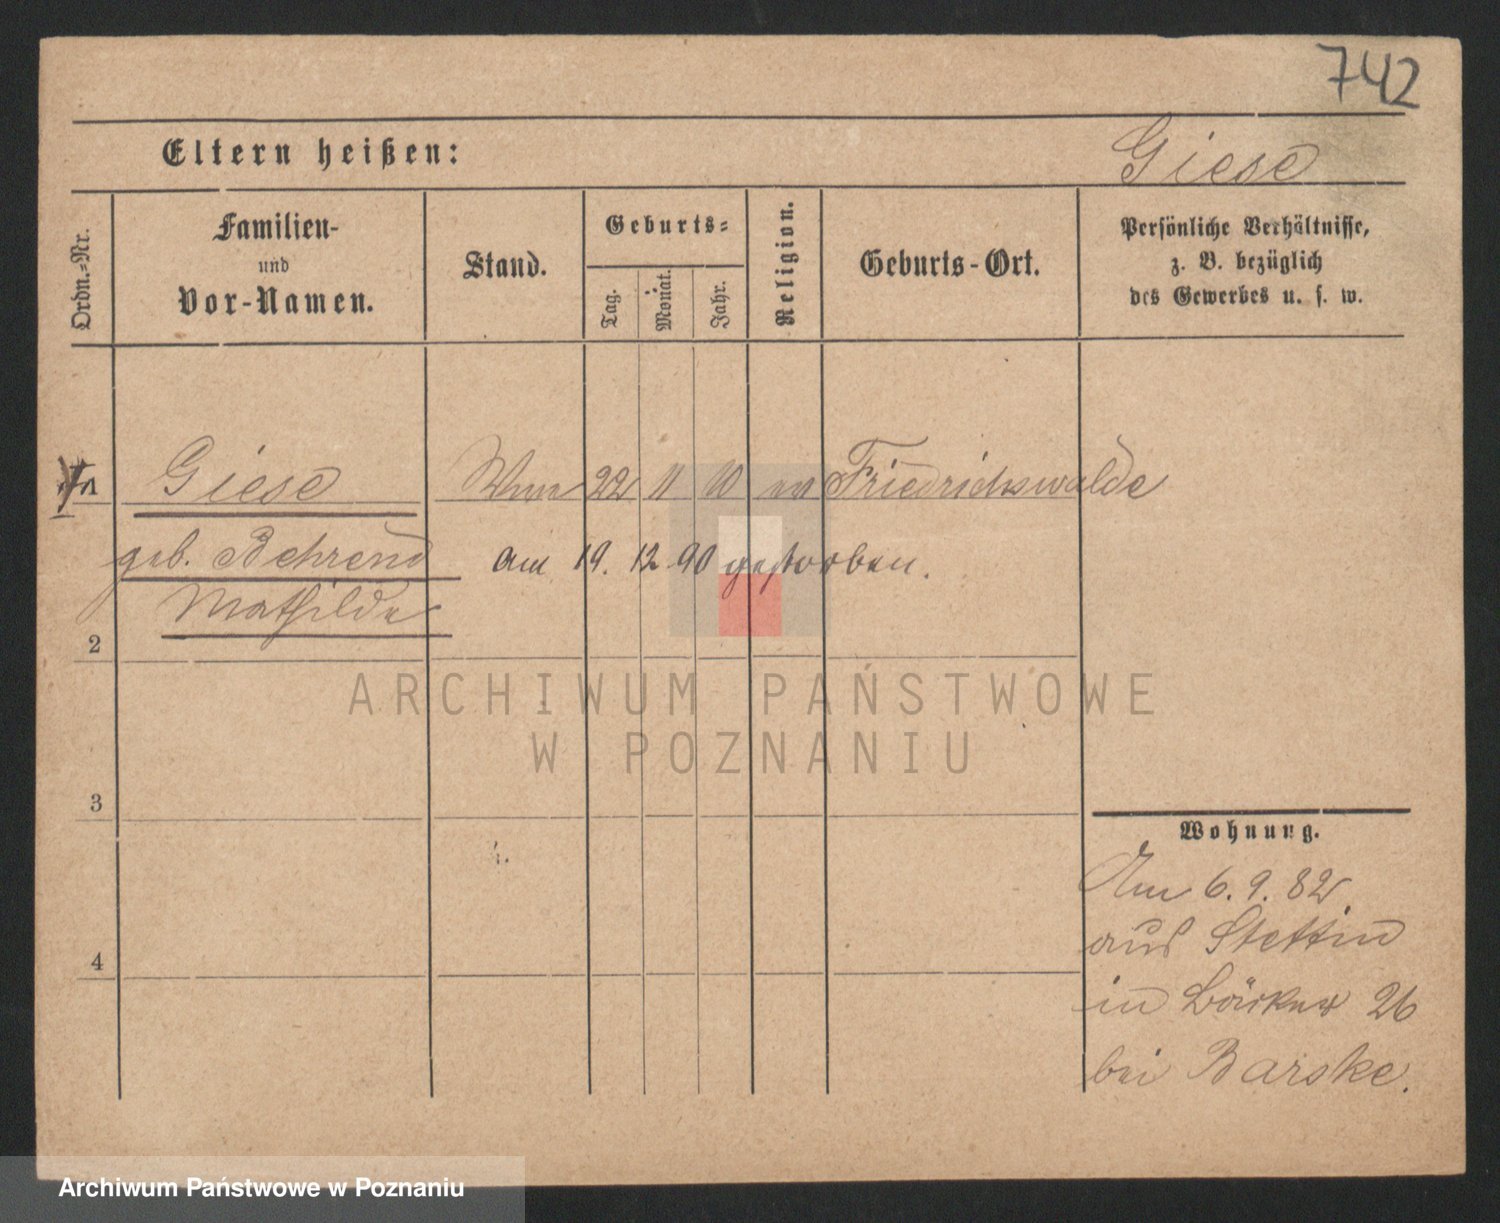 742
Eltern heißen: Giese
Ordn.-Nr.
Familien-
und
Vor-Namen.
Stand.
Geburts-
Tag.
Monat.
Jahr.
Religion.
Geburts-Ort.
Persönliche Verhältnisse,
z. B. bezüglich
des Gewerbes u. s. w.
Giese 22 11 10 ev Friedrichswalde
geb. Behrend am 19. 12 90 gestorben.
Mathilde
2
3
4
Wohnung.
Am 6. 9. 82
aus Stettin
in Bäcker 26
bei Barske.
ARCHIWUM PAŃSTWOWE
W POZNANIU
Archiwum Państwowe w Poznaniu